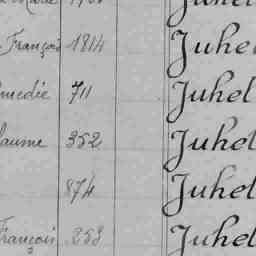 Juhel
François 1814 Juhel
médie 711 Juhel
laume 352 Juhel
874 Juhel
François 253 Juhel